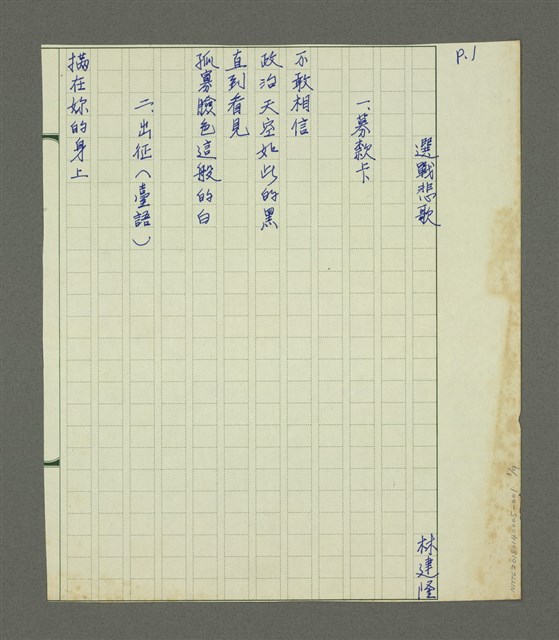 P.1
選戰悲歌
林建隆
一、募款卡
不敢相信
政治天空如此的黑
直到看見
孤寡臉色這般的白
二、出征(臺語)
揹在妳的身上